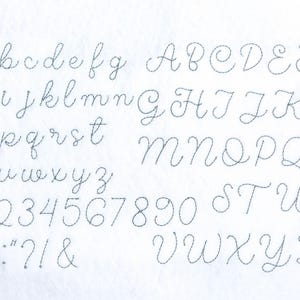 bcdefg
ijklmn
pqrst
uvwxyz
234567890
:"?!&
ABCDE
GHIJK
MNOPQ
STU
VWXY